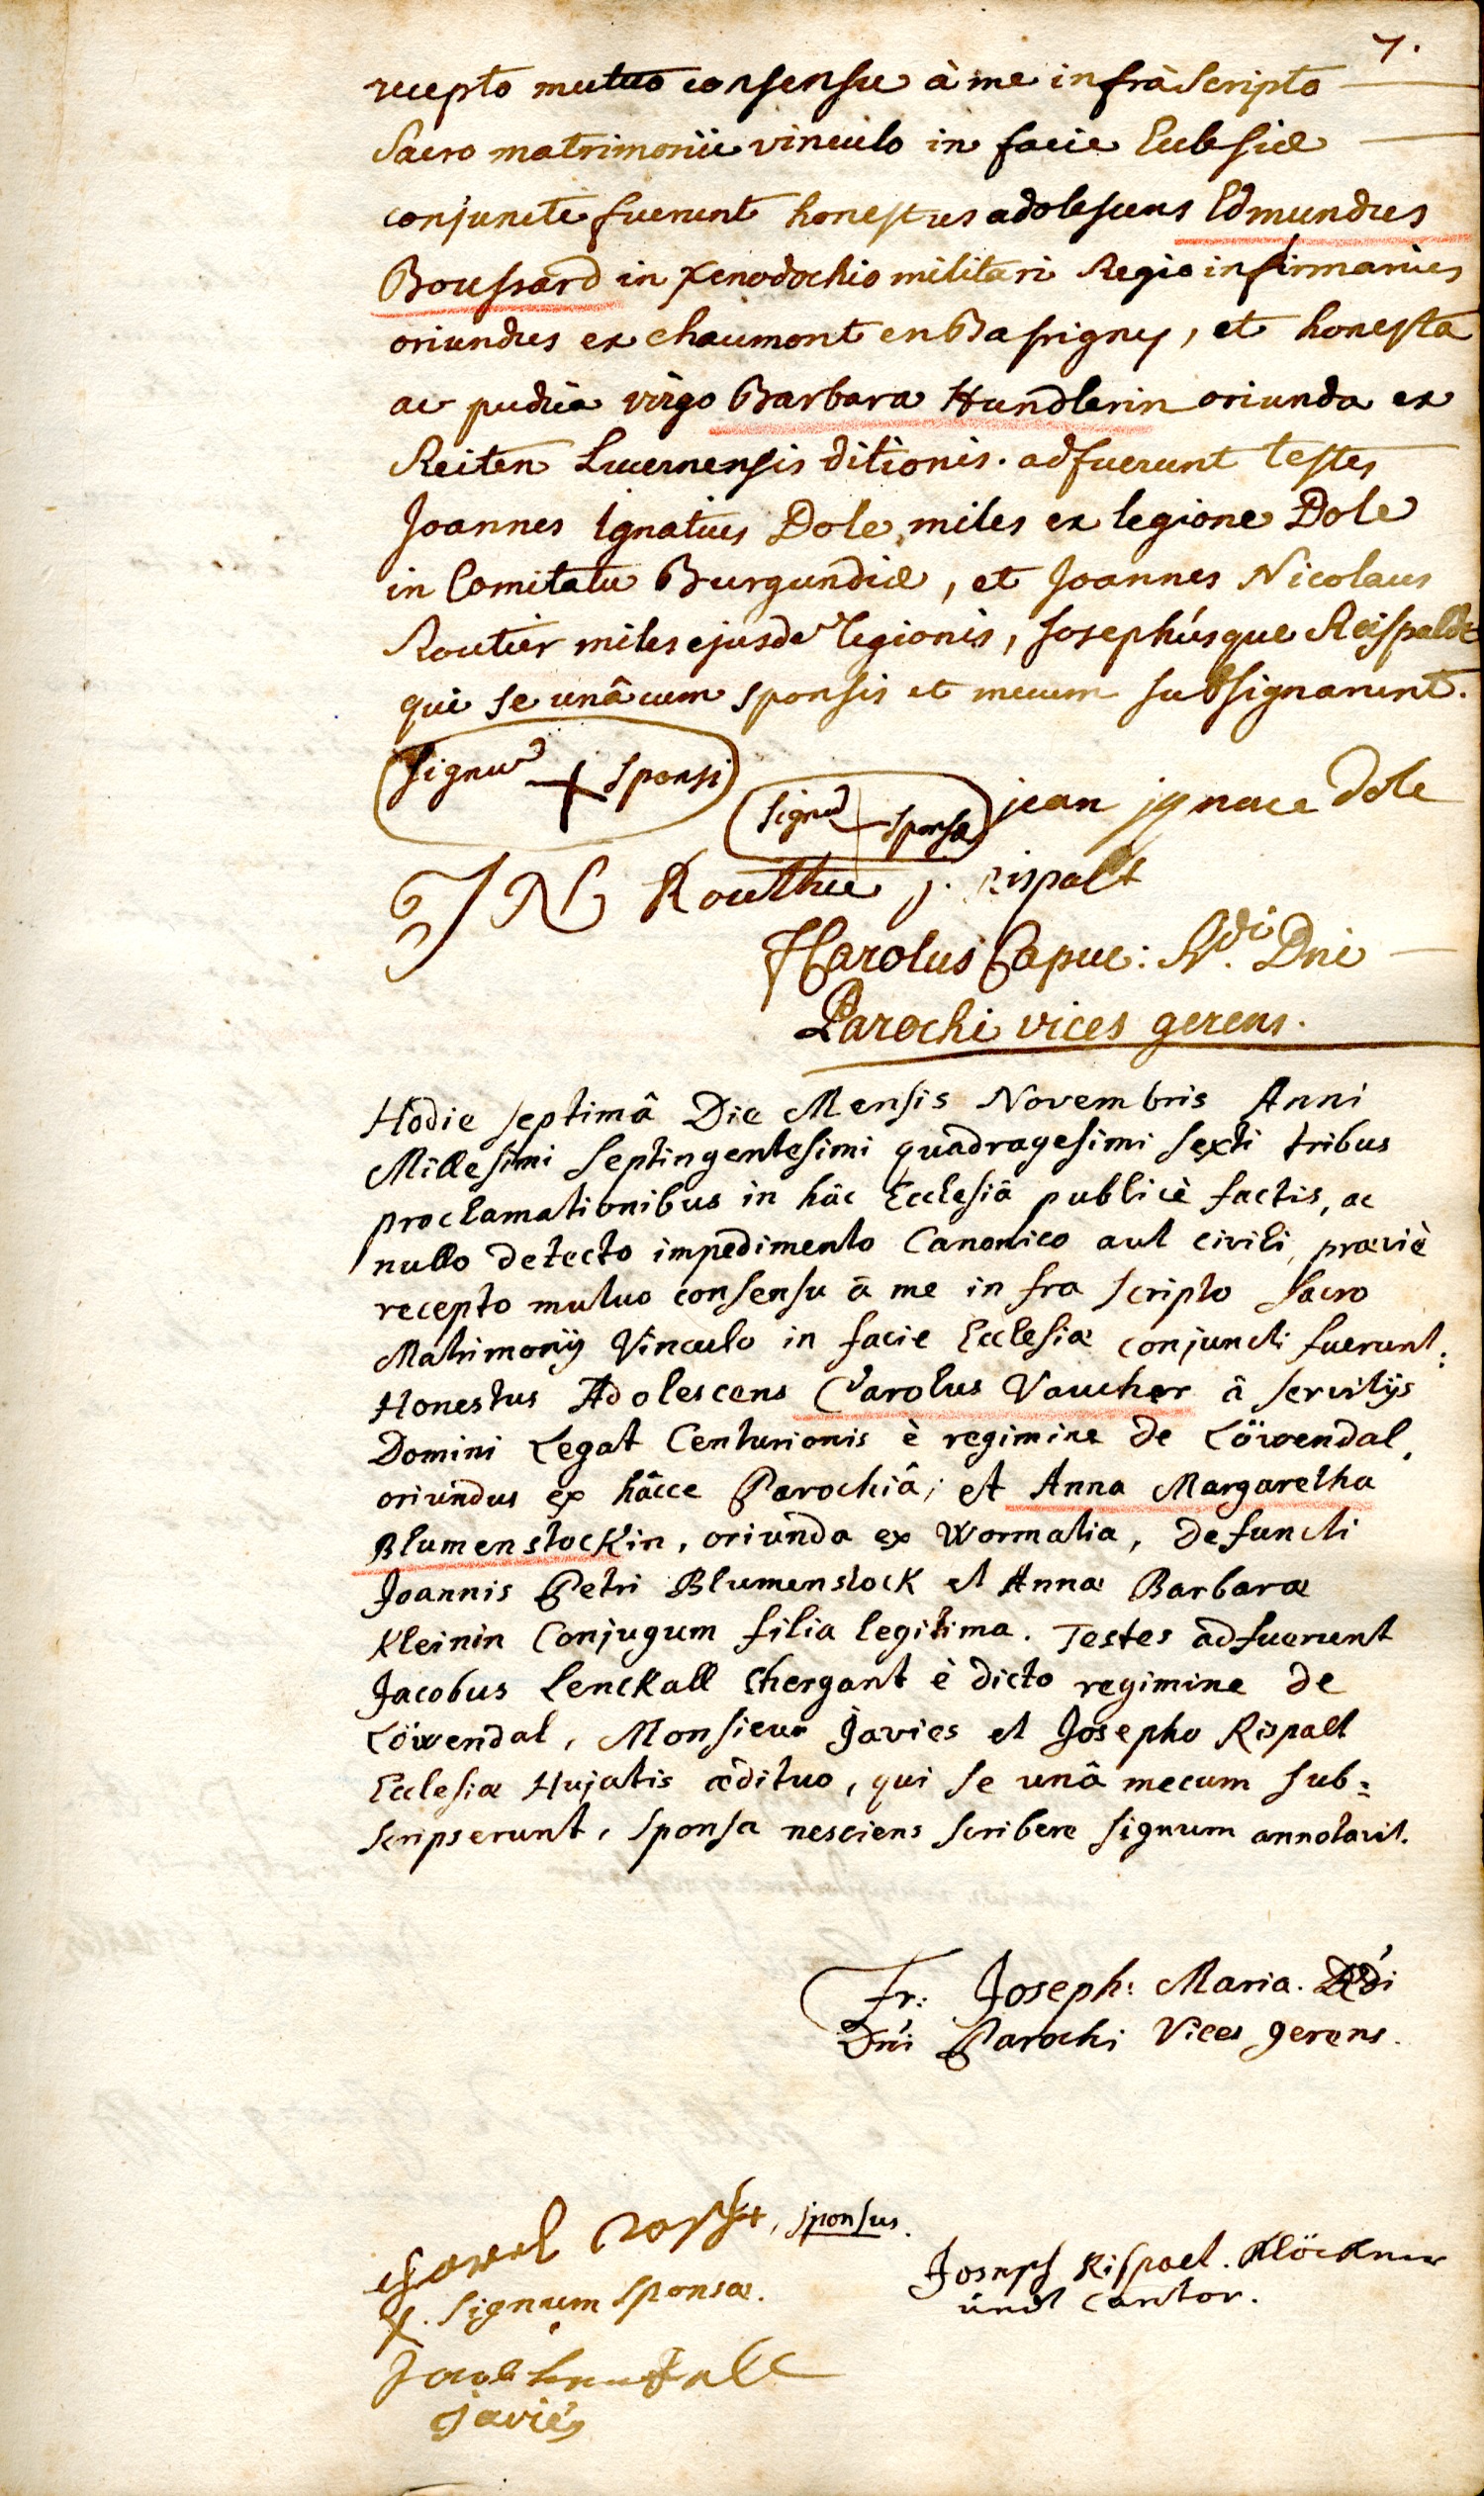 7.
recepto mutuo consensu à me infrà scripto
Sacro matrimonii vinculo in facie Ecclesiæ
conjuncti fuerunt honestus adolescens Edmundus
Boussard in Xenodochio militari Regio infirmarius
oriundus ex chaumont en Bassigny, et honesta
ac pudica virgo Barbara Hundlerin oriunda ex
Reiten Lucernensis ditionis. adfuerunt testes
Joannes Ignatius Dole, miles ex legione Dole
in Comitatu Burgundiæ, et Joannes Nicolaus
Routier miles ejusdē legionis, Josephúsque Reispalde
qui se unâ cum sponsis et mecum subsignarunt.
Signū + sponsi
Signū + sponsæ jean jgnace dole
J N Routhie j. rispalt
Carolus Capuc: Rdi. Dni
Parochi vices gerens.
Hodie septimâ Die Mensis Novembris Anni
Millesimi Septingentesimi quadragesimi sexti tribus
proclamationibus in hâc Ecclesiâ publicè factis, ac
nullo detecto impedimento Canonico aut civili, præviè
recepto mutuo consensu â me infra scripto Sacro
Matrimonij Vinculo in facie Ecclesiæ conjuncti fuerunt:
Honestus Adolescens Carolus Vaucher â servitijs
Domini Legat Centurionis è regimine de Löwendal,
oriundus ex hâcce Parochiâ; et Anna Margaretha
Blumenstockin, oriunda ex Wormatia, defuncti
Joannis Petri Blumenstock et Annæ Barbaræ
Kleinin Conjugum filia legitima. Testes adfuerunt
Jacobus Lenckall Chergant è dicto regimine de
Löwendal, Monsieur Javies et Josepho Rispalt
Ecclesiæ Hujatis ædituo, qui se unâ mecum sub=
scripserunt, sponsa nesciens scribere signum annotavit.
Fr: Joseph: Maria. Rdi
Dni Parochi Vices gerens.
sponsus.
Joseph Rispalt. Klöckner
und Cantor.
X. Signum Sponsæ.
Javies